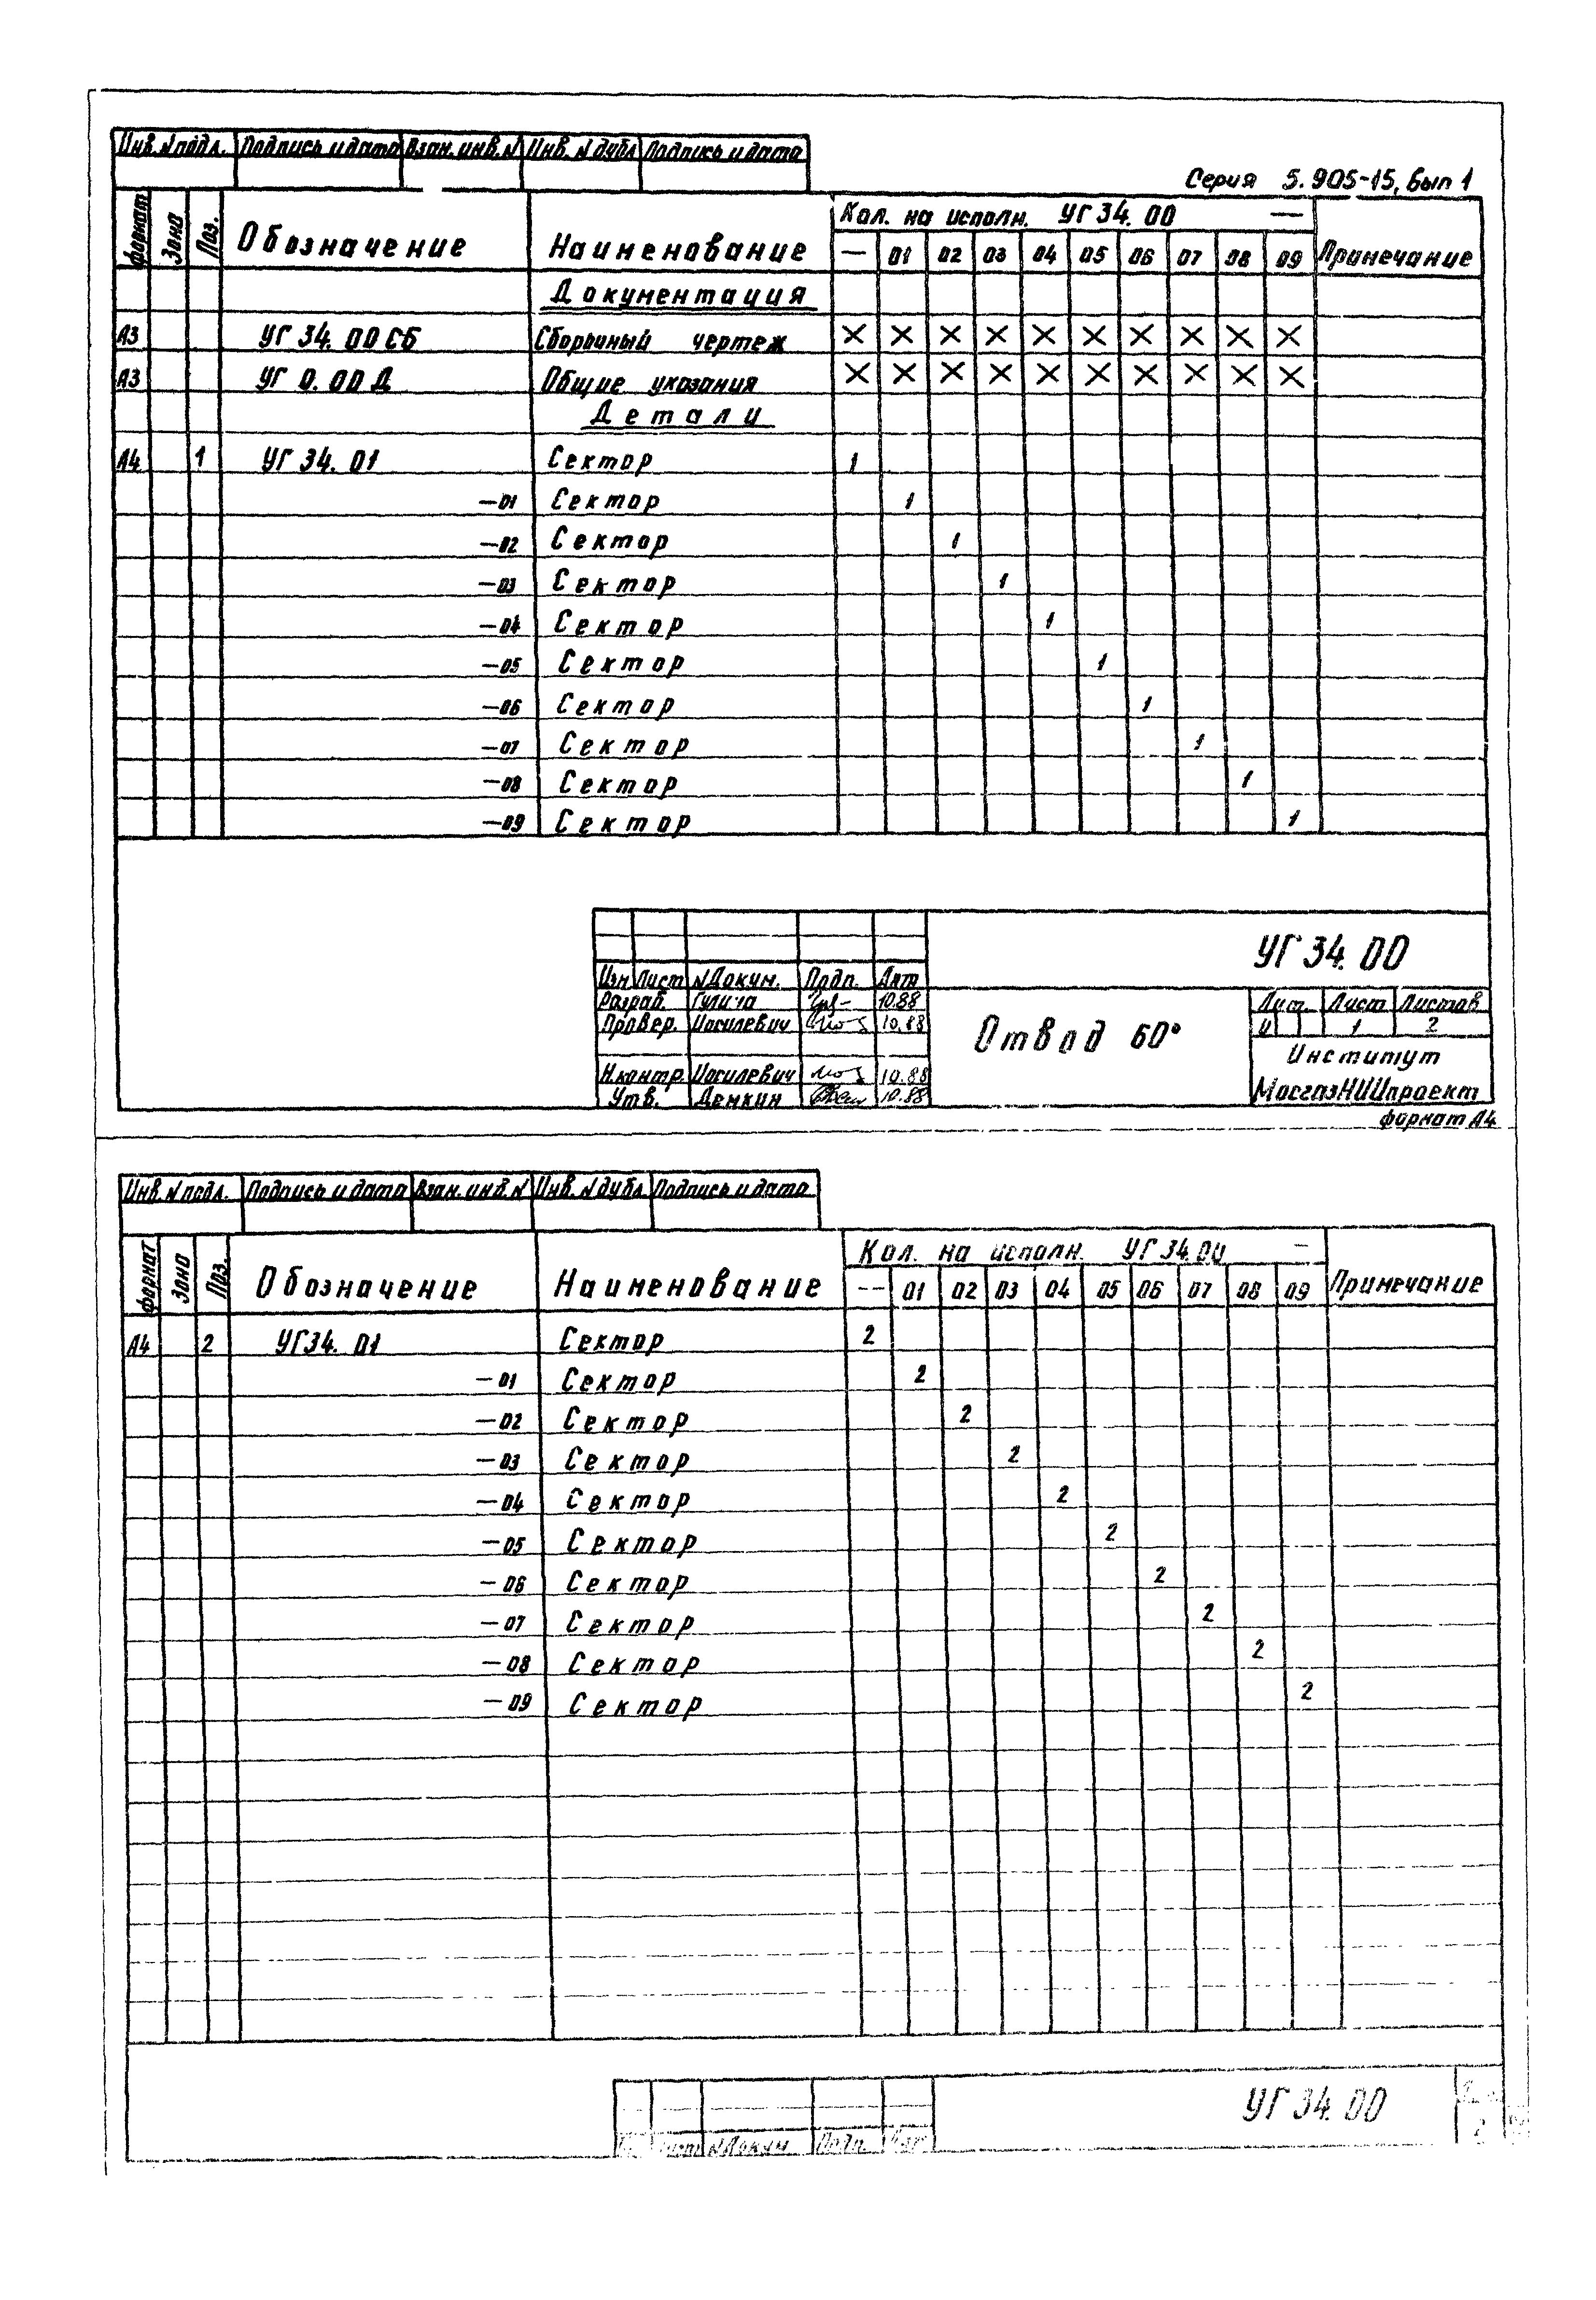 Инв. № подл. Подпись и дата Взам. инв. № Инв. № дубл. Подпись и дата
Серия 5.905-15, вып 1
формат Зона Поз. Обозначение Наименование Кол. на исполн. УГ 34.00 — Примечание
— 01 02 03 04 05 06 07 08 09
Документация
А3 УГ 34.00 СБ Сборочный чертеж × × × × × × × × × ×
А3 УГ 0.00 Д Общие указания × × × × × × × × × ×
Детали
А4 1 УГ 34.01 Сектор 1
—01 Сектор 1
—02 Сектор 1
—03 Сектор 1
—04 Сектор 1
—05 Сектор 1
—06 Сектор 1
—07 Сектор 1
—08 Сектор 1
—09 Сектор 1
УГ 34.00
Изм Лист № Докум. Подп. Дата
Разраб. 10.88
Провер. Иоселевич 10.88
Н.контр. Иоселевич 10.88
Утв. Демкин 10.88
Отвод 60°
Лит. Лист Листов
И 1 2
Институт
МосгазНИИпроект
формат А4
Инв. № подл. Подпись и дата Взам. инв. № Инв. № дубл. Подпись и дата
формат Зона Поз. Обозначение Наименование Кол. на исполн. УГ 34.00 — Примечание
— 01 02 03 04 05 06 07 08 09
А4 2 УГ34.01 Сектор 2
—01 Сектор 2
—02 Сектор 2
—03 Сектор 2
—04 Сектор 2
—05 Сектор 2
—06 Сектор 2
—07 Сектор 2
—08 Сектор 2
—09 Сектор 2
УГ 34.00
Лист № Докум. Подп.
2